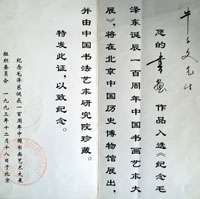 先生
您的书画作品入选《纪念毛
泽东诞辰一百周年中国书画艺术大
展》，将在北京中国历史博物馆展出，
并由中国书法艺术研究院珍藏。
特发此证，以致纪念。
纪念毛泽东诞辰一百周年中国书画艺术大展
组织委员会 一九九三年十二月十八日于北京